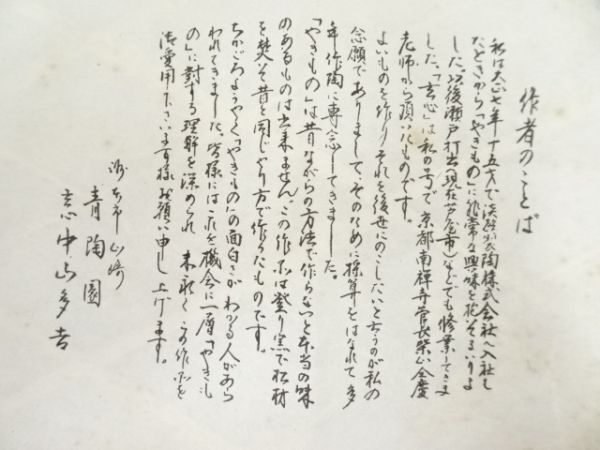 作者のことば
私は大正七年十五才で淡路製陶株式会社へ入社し
たときから「やきもの」に非常な興味を抱そるいりよ
した。以後瀬戸打出(現在芦屋市)などでも修業してきま
した。「玄心」は私の号で京都南禅寺管長柴山全慶
老師から頂いたものです。
よいものを作りそれを後世にのこしたいと言うのが私の
念願でありまして、そのために採算をはなれて多
年作陶に専念してきました。
「やきもの」は昔ながらの方法で作らないと本当の味
のあるものは出来ません。この作品は登り窯で松材
を焚き昔と同じやり方で作ったものです。
ちかごろようやく「やきもの」の面白さがわかる人があら
われてきました。皆様にはこれを機会に一層「やきも
の」に対する理解を深められ 末永くこの作品を
御愛用下さいます様お願い申し上げます。
洲本市山崎
青陶園
玄心中山多吉